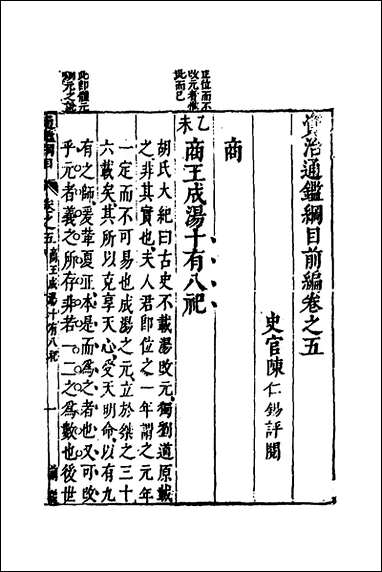 資治通鑑綱目前編卷之五
史官陳仁錫評閱
商
乙未
商王成湯十有八祀
正位而不
改元者惟
此而已
胡氏大紀曰古史不載湯改元獨劉道原載
之非其實也夫人君即位之一年謂之元年
一定而不可易也成湯之元立於桀之三十
六載矣其所以克享天心受天明命以有九
有之師爰革夏正本是而為之者也又可改
乎元者義之所存非若一二之為數也後世
此即體元
之
通鑑綱目
卷之五商王成湯十有八祀
一